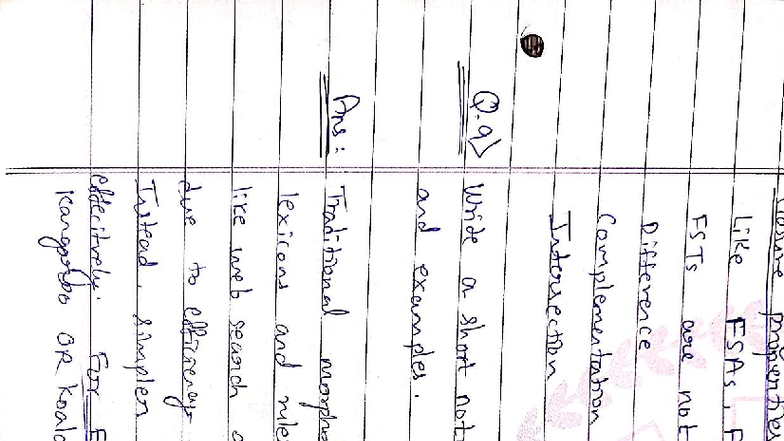 Like FSAs, F
FSTs are not
Difference
Complementation
Intersection
Q.9) Write a short not
and examples.
Ans: Traditional morpho
lexicons and rule
like web search
due to efficiency
Instead, simpler
effecitvely. For E
Kangaroo OR koala